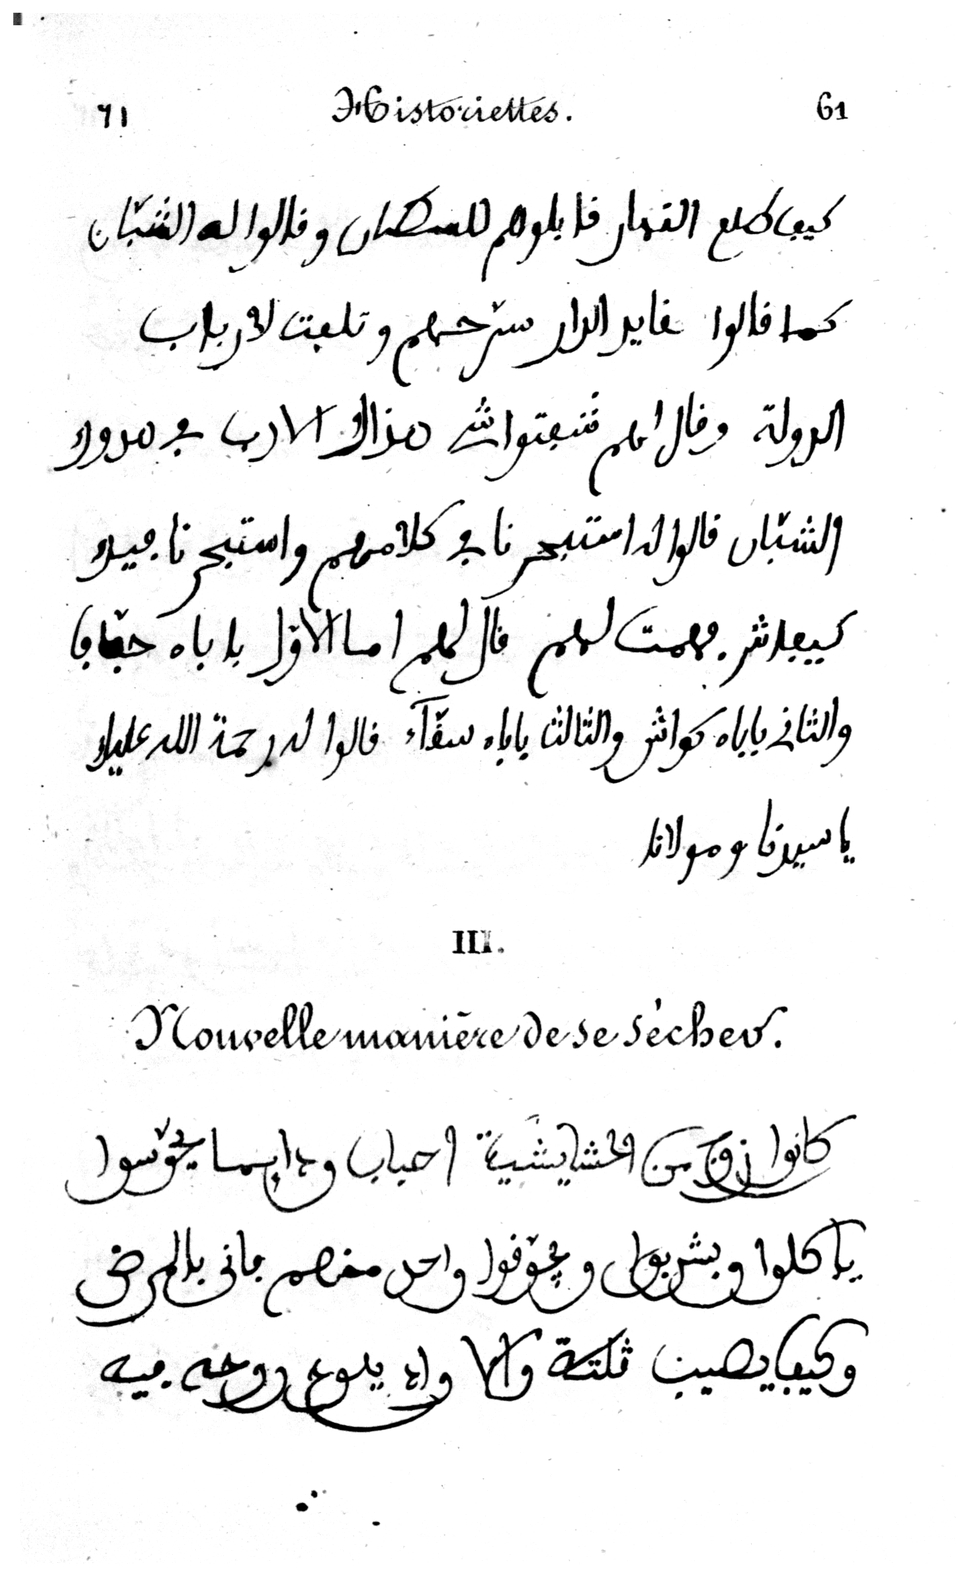 ٦١ Historiettes. 61
كيف طلع النهار قابلوهم للسلطان وقالوا له الشبّان
كما قالوا لقايد الدار سرّحهم وتلفت لارباب
الدولة وقال لهم شبعتوا شي هذاك الادب في هدوك
الشبّان قالوا له استبحرنا في كلامهم واستبحرنا فيك
كيفاش فهمت لهم قال لهم اما الاوّل باباه حفّاف
والثاني باباه كواش والثالث باباه سقّاء قالوا له رحمة الله عليك
يا سيدنا ومولانا
III.
Nouvelle manière de se sécher.
كانوا زوج من الحشايشية احباب ودايما يحوّسوا
ياكلوا ويشربوا ويحوّفوا واحد منهم فاني بالمرض
وكيف يصيب ڢلتة والا واد يلوح روحه فيه